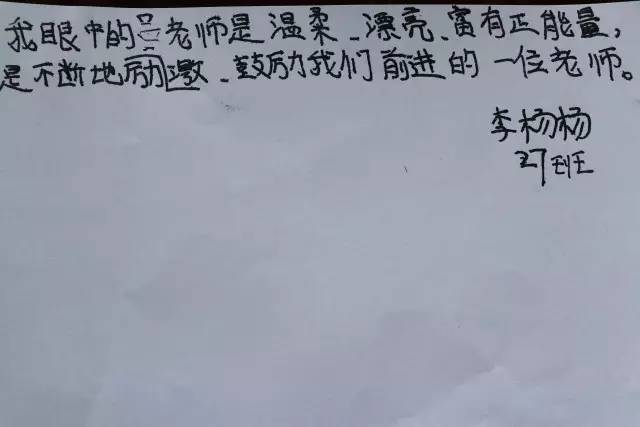 我眼中的吕老师是温柔、漂亮、富有正能量,
是不断地励邀、鼓励我们前进的一位老师。
李杨杨
27班